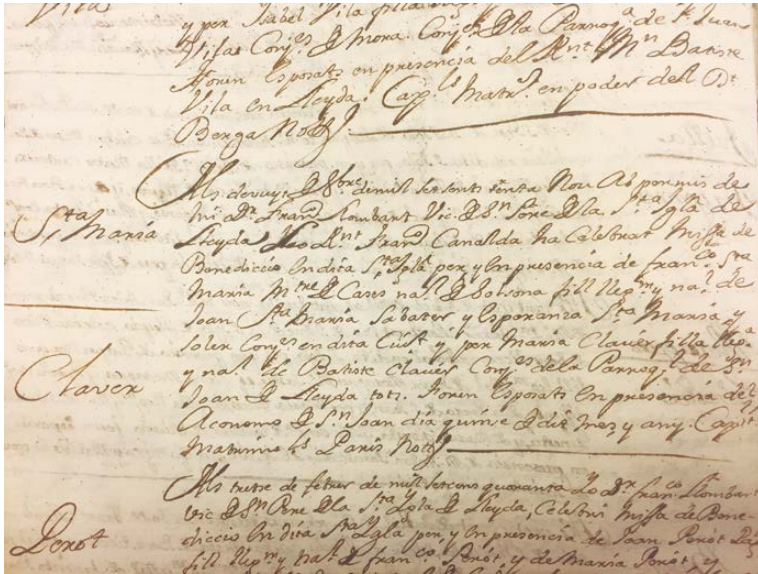 Vila
y per Isabel Vila filla
Vilas Conjes. de Mora. Conjes. de la Parroqa. de St. Juan
foren Esposats en presencia del Rnt. Mn. Batiste
Vila en Lleyda. Capls. Matrls. en poder del Dt.
Berga Notts.
Als devuyt de 8bre. de mil setsents trenta Nou Ab permis de
lo Dr. Franco. Llombart Vic. de Sn. Pere de la Sta. Iglã. de
Sta. Maria
Lleyda Jo Rnt. Franco. Canalda ha Celebrat Missa de
Benedicció En dita Sta. Iglã per, y En presencia de franco. Sta.
Maria Mtre. de Cases nal. de Solsona fill llegm. y nal. de
Joan Sta. Maria Sabater y Esperansa Sta. Maria, y
Soler Conjes en dita Ciut. y per Maria Claver filla llega.
Claver
y nal. de Batiste Claver Conjes de la Parroql. de Sn.
Joan de Lleyda tots. foren Esposats En presencia del
Aconomo de Sn. Joan dia quinse de dit mes, y any. Capls.
Matrimls. Paris Notts.
Als tretse de febrer de mil setcens quaranta Jo Dr. franco. Llombart
vic de Sn. Pere de la Sta. Iglã. de Lleyda, Celebrí Missa de Bene-
Perot
dicció En dita Sta. Iglã. per, y En presencia de Joan Perot
fill llegm. y nal. de franco. Perot, y de Maria Perot, y